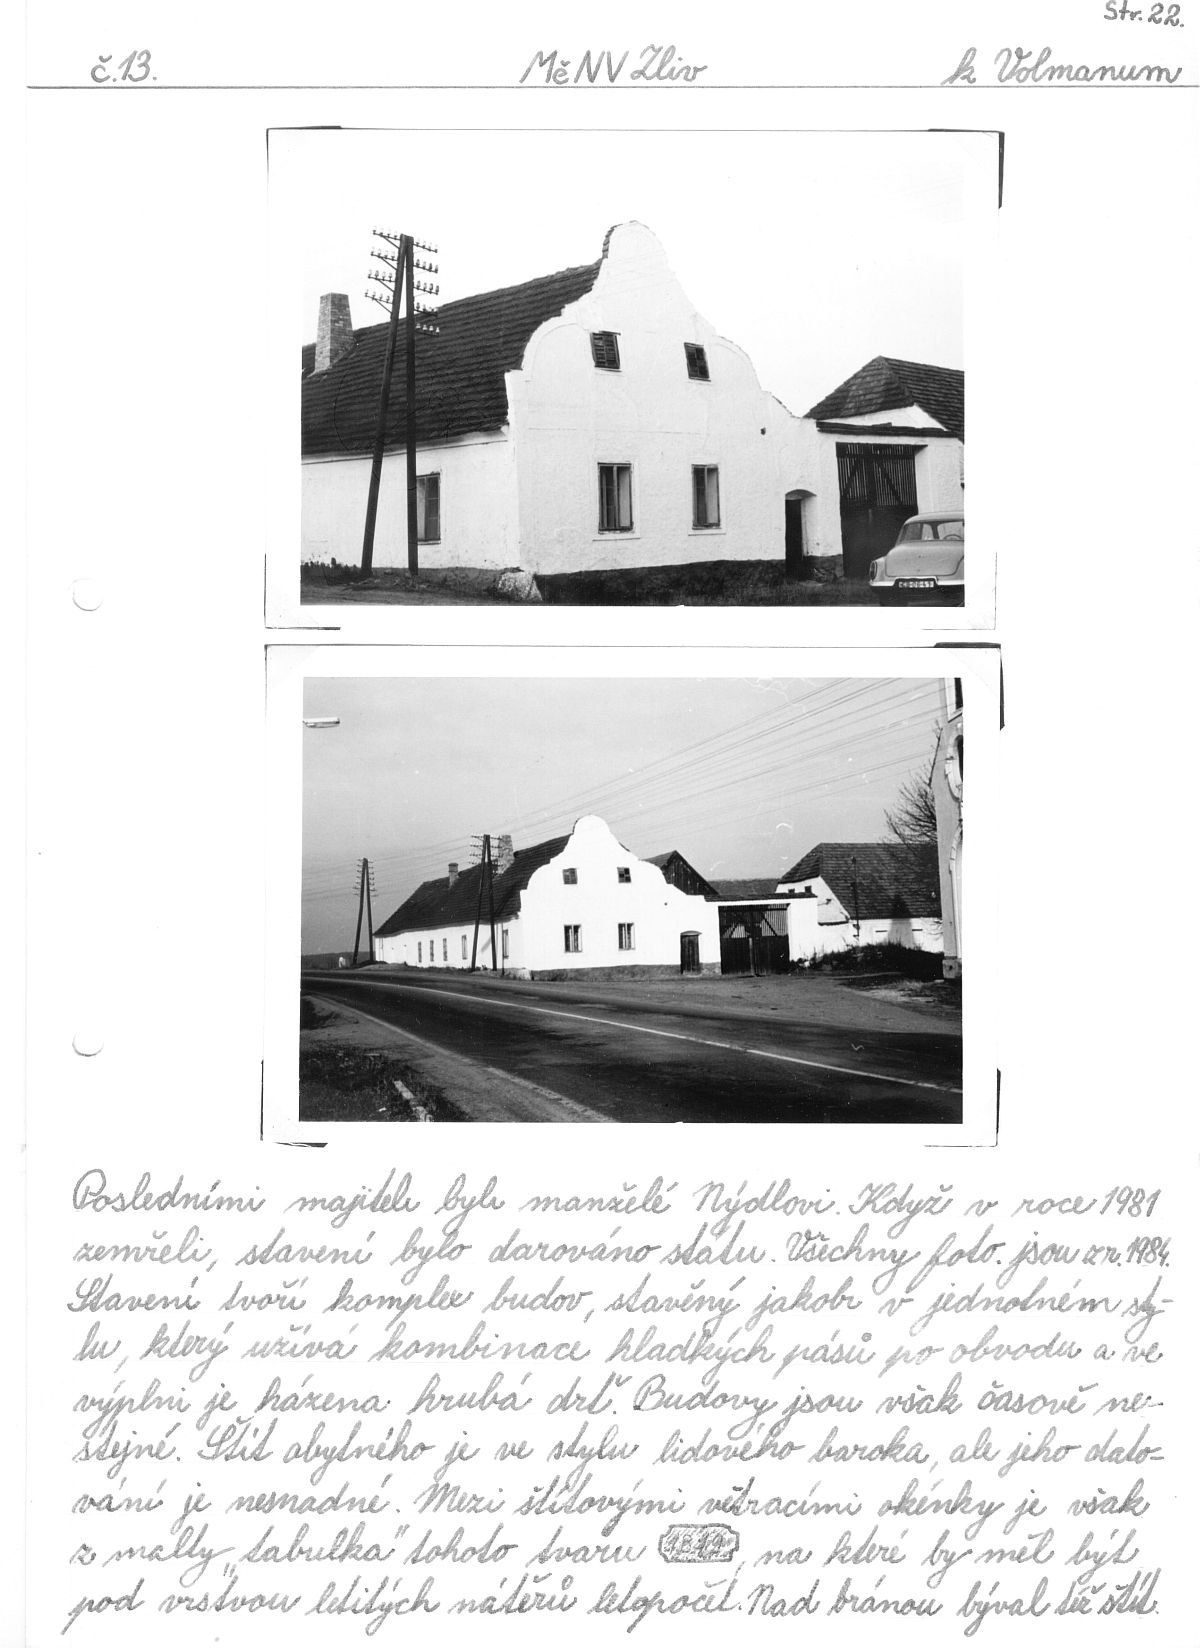 Str. 22.
č. 13.
MěNV Zliv
k Volmanum
CB-06-47
Posledními majiteli byli manželé Nýdlovi. Když v roce 1981
zemřeli, stavení bylo darováno státu. Všechny foto. jsou z r. 1984.
Stavení tvoří komplex budov, stavěný jakoby v jednotném sty-
lu, který užívá kombinace hladkých pásů po obvodu a ve
výplni je házena hrubá drť. Budovy jsou však časově ne-
stejné. Štít obytného je ve stylu lidového baroka, ale jeho dato-
vání je nesnadné. Mezi štítovými větracími okénky je však
z malty „tabulka" tohoto tvaru 1819, na které by měl být
pod vrstvou letitých nátěrů letopočet. Nad bránou býval též štít.